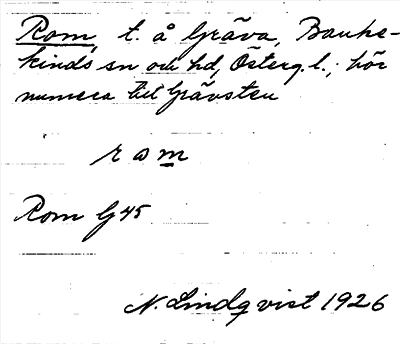 Rom, t. å Gräva, Banke-
kinds sn och hd, Österg. l.; hör
numera till Grävsten
r a m
Rom G 45
N. Lindqvist 1926